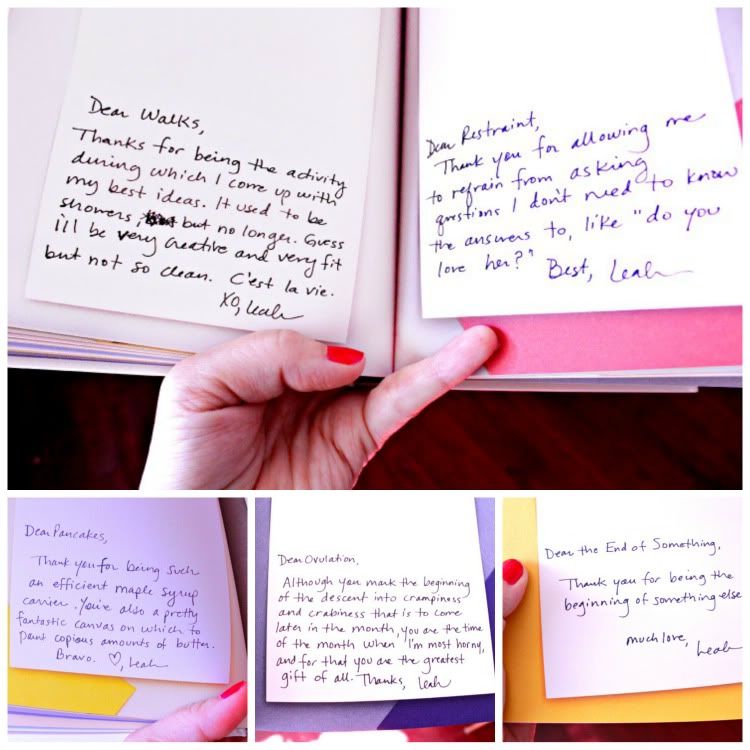 Dear Walks,
Thanks for being the activity
during which I come up with
my best ideas. It used to be
showers, but no longer. Guess
i'll be very creative and very fit
but not so clean. C'est la vie.
XO, Leah
Dear Restraint,
Thank you for allowing me
to refrain from asking
questions I don't need to know
the answers to, like "do you
love her?" Best, Leah
Dear Pancakes,
Thank you for being such
an efficient maple syrup
carrier. You're also a pretty
fantastic canvas on which to
paint copious amounts of butter.
Bravo. ♡, Leah
Dear Ovulation,
Although you mark the beginning
of the descent into crampiness
and crabiness that is to come
later in the month, you are the time
of the month when I'm most horny,
and for that you are the greatest
gift of all. Thanks, Leah
Dear the End of Something,
Thank you for being the
beginning of something else
much love,
Leah